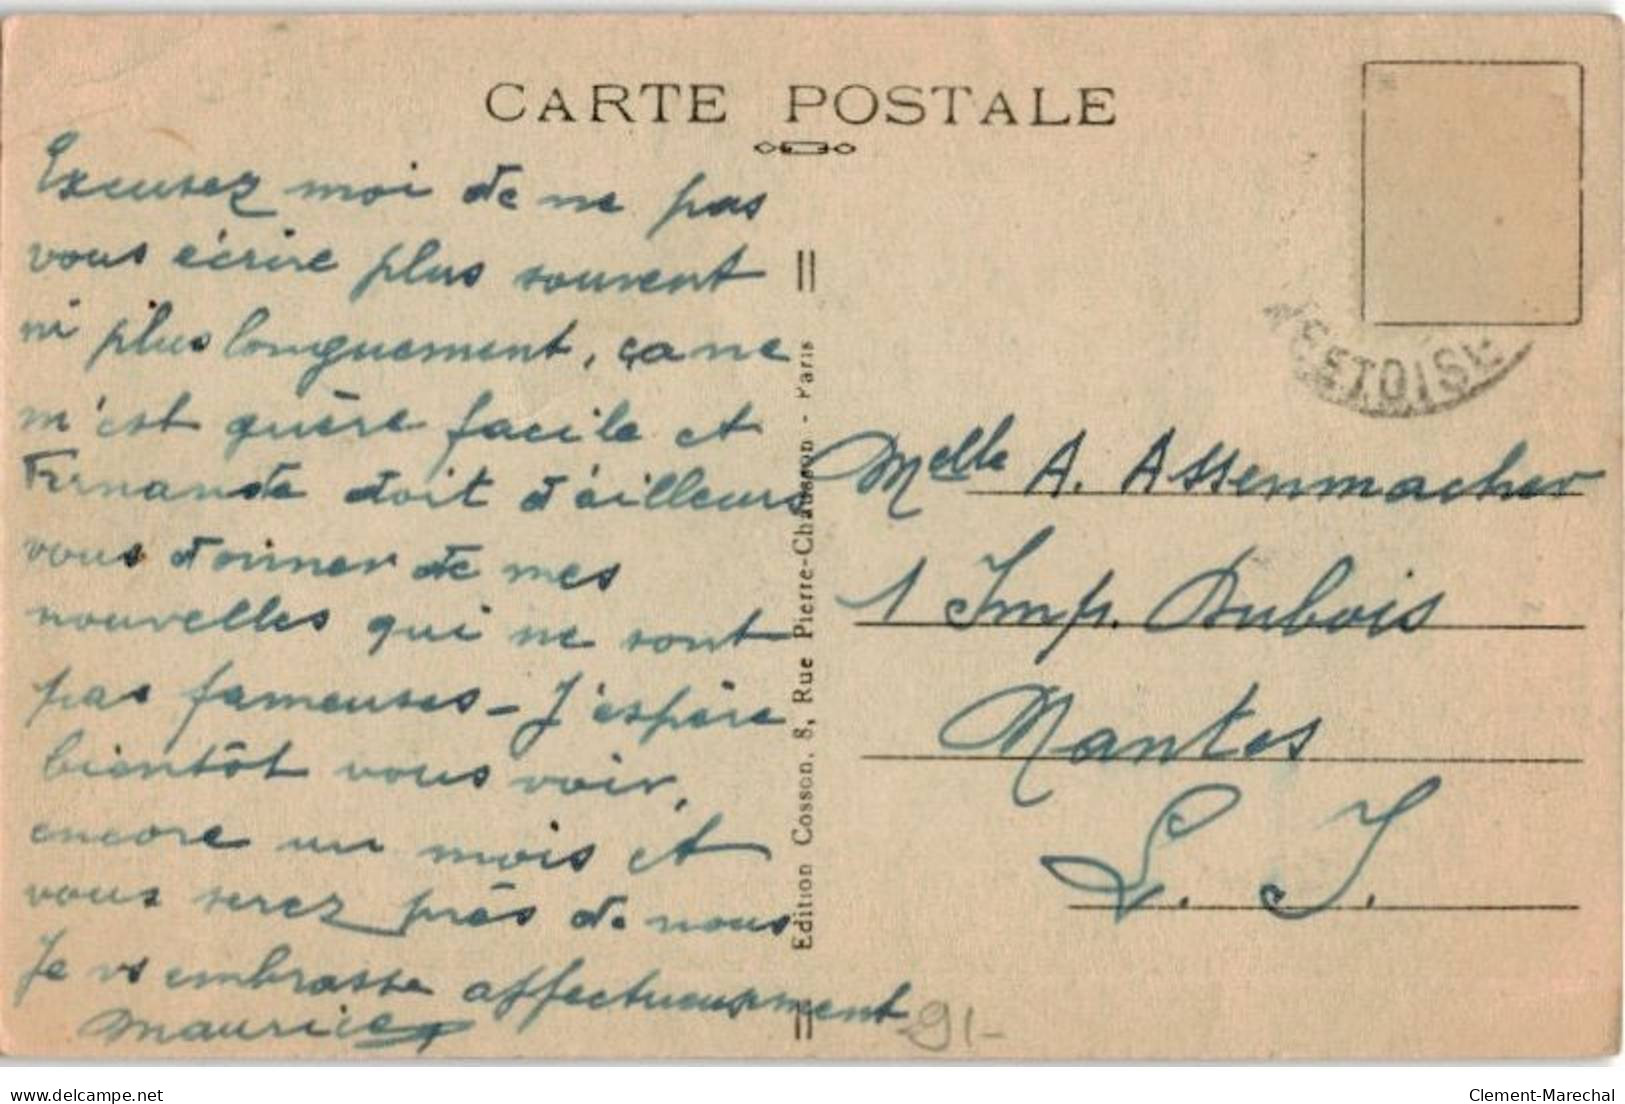 CARTE POSTALE
Excusez moi de ne pas
vous écrire plus souvent
ni plus longuement, ça ne
m'est guère facile et
Fernande doit d'ailleurs
vous donner de mes
nouvelles qui ne sont
pas fameuses - J'espère
bientôt vous voir,
encore un mois et
vous serez près de nous
Je vs embrasse affectueusement
Maurice
Edition Cosson, 8, Rue Pierre-Chausson - Paris
Melle A. Assenmacher
1 Imp. Dubois
Nantes
L. I.
91-
delcampe.net
Clement-Marechal